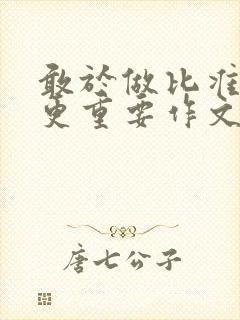 敢於做比准
更重要作文
唐七公子